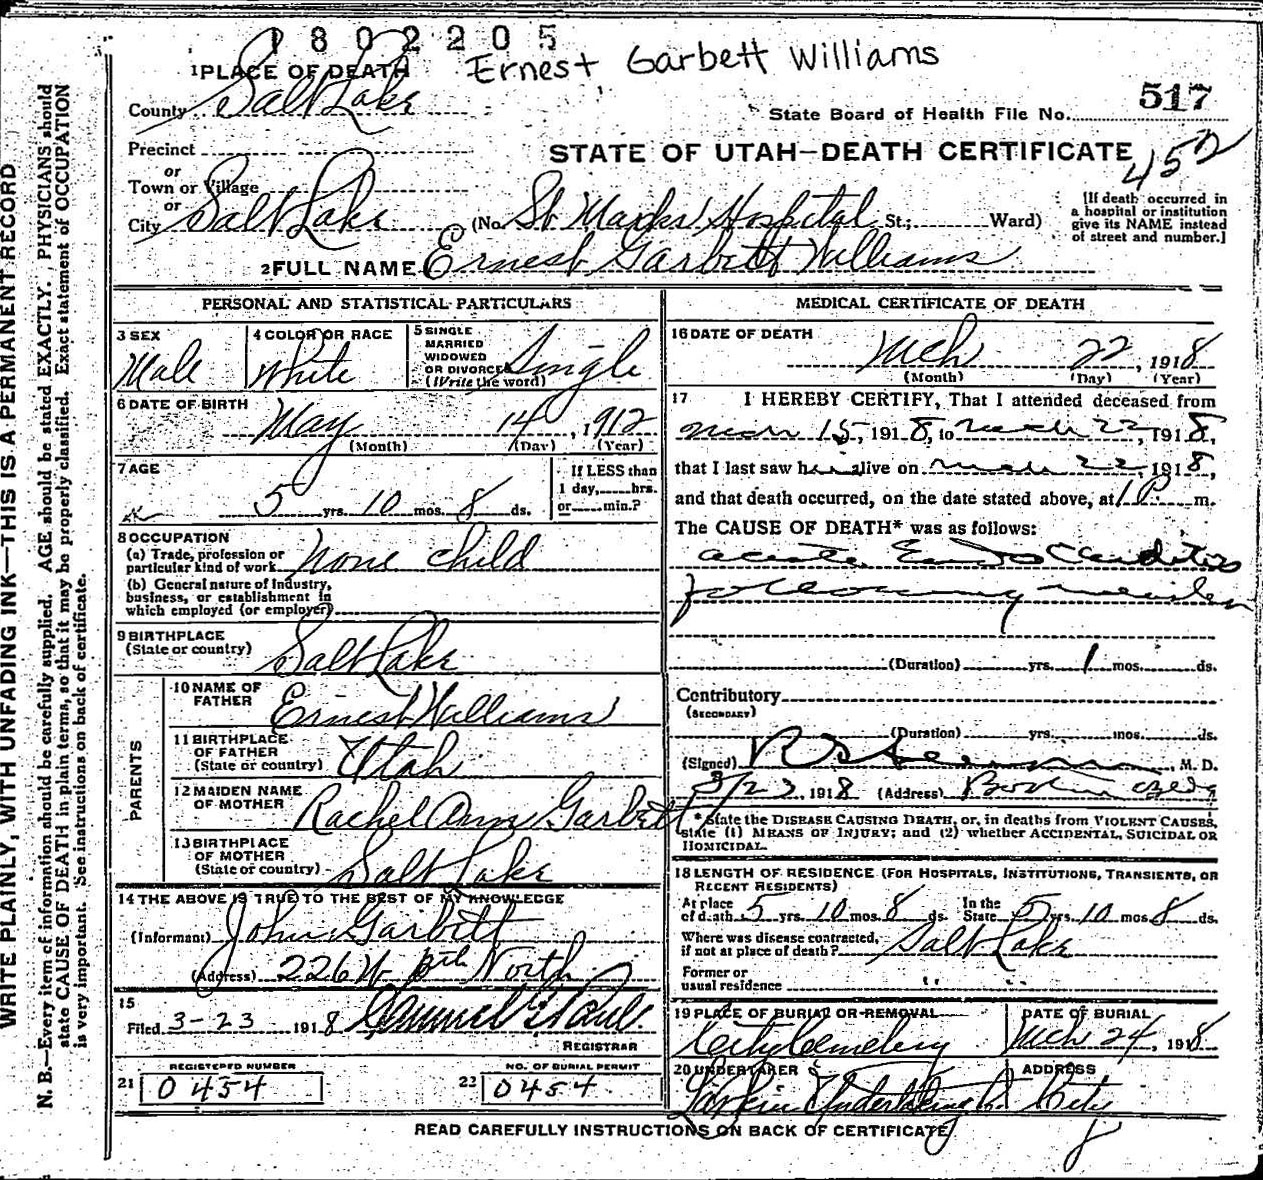 1802205
Ernest Garbett Williams
1 PLACE OF DEATH
County Salt Lake
State Board of Health File No. 517
Precinct
STATE OF UTAH—DEATH CERTIFICATE
452
or
Town or Village
or
City Salt Lake (No. St Marks Hospital St.; Ward)
[If death occurred in
a hospital or institution
give its NAME instead
of street and number.]
2 FULL NAME Ernest Garbett Williams
PERSONAL AND STATISTICAL PARTICULARS
3 SEX
Male
4 COLOR OR RACE
White
5 SINGLE
MARRIED
WIDOWED
OR DIVORCED
(Write the word)
Single
6 DATE OF BIRTH
May 14, 1912
(Month) (Day) (Year)
7 AGE
5 yrs. 10 mos. 8 ds.
If LESS than
1 day, hrs.
or min.?
8 OCCUPATION
(a) Trade, profession or
particular kind of work None child
(b) General nature of industry,
business, or establishment in
which employed (or employer)
9 BIRTHPLACE
(State or country) Salt Lake
PARENTS
10 NAME OF
FATHER Ernest Williams
11 BIRTHPLACE
OF FATHER
(State or country) Utah
12 MAIDEN NAME
OF MOTHER Rachel Ann Garbett
13 BIRTHPLACE
OF MOTHER
(State or country) Salt Lake
14 THE ABOVE IS TRUE TO THE BEST OF MY KNOWLEDGE
(Informant) John Garbett
(Address) 226 W North
15
Filed 3-23 1918
REGISTRAR
REGISTERED NUMBER
21 0454
NO. OF BURIAL PERMIT
22 0454
MEDICAL CERTIFICATE OF DEATH
16 DATE OF DEATH
Mch 22, 1918
(Month) (Day) (Year)
17 I HEREBY CERTIFY, That I attended deceased from
March 15, 1918, to March 22, 1918,
that I last saw him alive on March 22, 1918,
and that death occurred, on the date stated above, at 1 P. m.
The CAUSE OF DEATH* was as follows:
acute Endocarditis
following measles
(Duration) yrs. 1 mos. ds.
Contributory
(SECONDARY)
(Duration) yrs. mos. ds.
(Signed) M. D.
3/23, 1918 (Address) Boston Bldg
*State the DISEASE CAUSING DEATH, or, in deaths from VIOLENT CAUSES,
state (1) MEANS OF INJURY; and (2) whether ACCIDENTAL, SUICIDAL OR
HOMICIDAL.
18 LENGTH OF RESIDENCE (FOR HOSPITALS, INSTITUTIONS, TRANSIENTS, OR
RECENT RESIDENTS)
At place
of death 5 yrs. 10 mos. 8 ds.
In the
State 5 yrs. 10 mos. 8 ds.
Where was disease contracted,
if not at place of death? Salt Lake
Former or
usual residence " "
19 PLACE OF BURIAL OR REMOVAL
City Cemetery
DATE OF BURIAL
Mch 24, 1918
20 UNDERTAKER
Larkin Undertaking Co
ADDRESS
City
READ CAREFULLY INSTRUCTIONS ON BACK OF CERTIFICATE
WRITE PLAINLY, WITH UNFADING INK—THIS IS A PERMANENT RECORD
N. B.—Every item of information should be carefully supplied. AGE should be stated EXACTLY. PHYSICIANS should
state CAUSE OF DEATH in plain terms, so that it may be properly classified. Exact statement of OCCUPATION
is very important. See instructions on back of certificate.